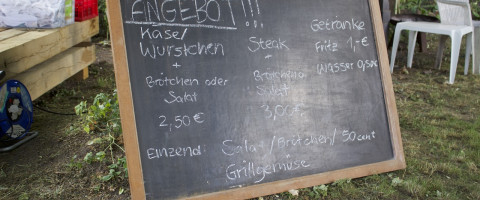 ANGEBOT!!!
Käse/
Würstchen
+
Brötchen oder
Salat
2,50€
Steak
+
Brötchen o.
Salat
3,00€
Getränke
Fritz 1,-€
Wasser 0,50€
Einzend: Salat/Brötchen/50cent
Grillgemüse